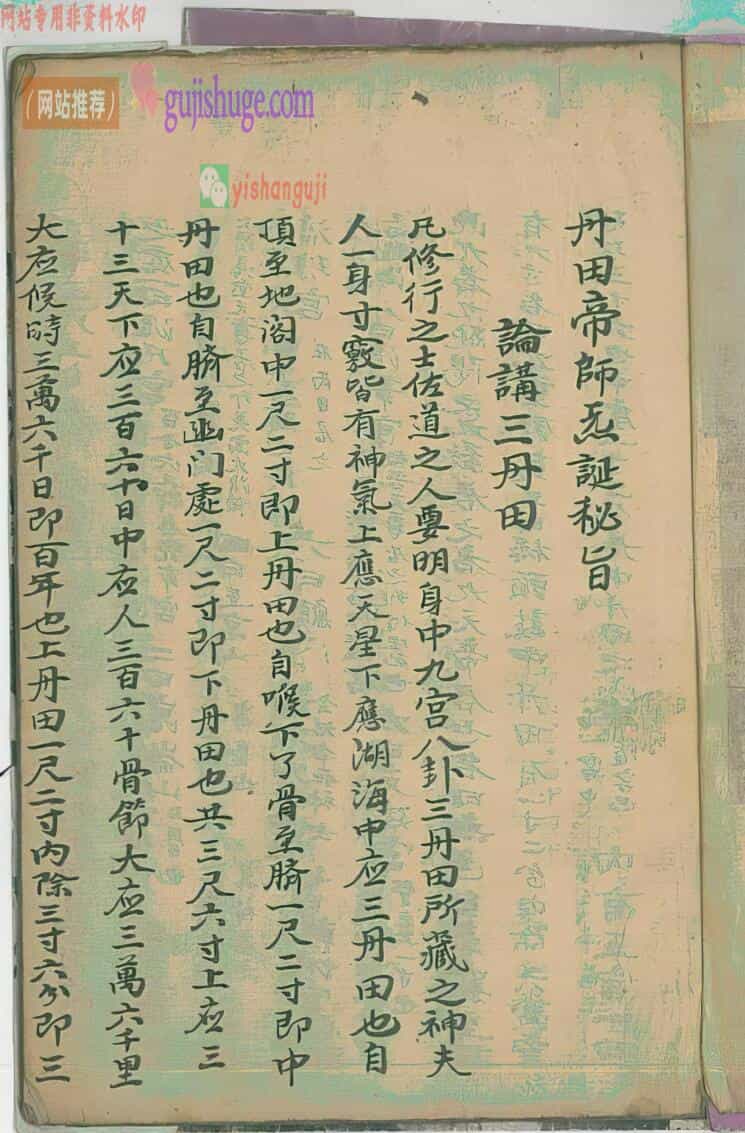 网站专用非资料水印
（网站推荐）
gujishuge.com
yishanguji
丹田帝師炁誕秘旨
論講三丹田
凡修行之士佐道之人要明身中九宫八卦三丹田所藏之神夫
人一身寸竅皆有神氣上應天星下應湖海中应三丹田也自
頂至地阁中一尺二寸即上丹田也自喉下了骨至臍一尺二寸即中
丹田也自臍至幽门處一尺二寸即下丹田也共三尺六寸上应三
十三天下应三百六十日中应人三百六十骨節大应三萬六千里
大应候時三萬六千日即百年也上丹田一尺二寸内除三寸六分即三